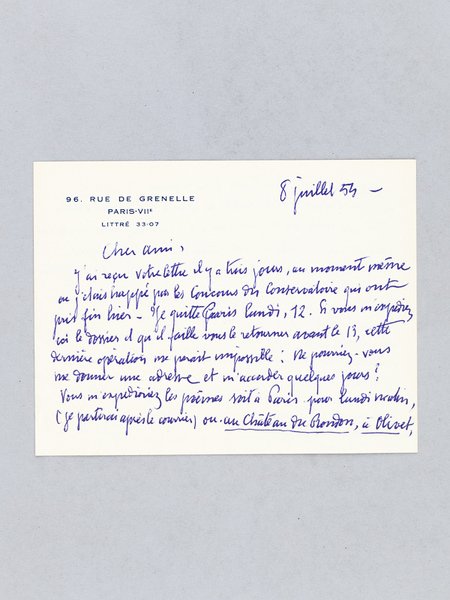 96. RUE DE GRENELLE
PARIS-VIIe
LITTRÉ 33-07
8 juillet 54 -
Cher ami,
J'ai reçu votre lettre il y a trois jours, au moment même
où j'étais happé par les Concours du Conservatoire qui ont
pris fin hier - Je quitte Paris lundi, 12. Si vous m'expédiez
ici le dossier et qu'il faille vous le retourner avant le 13, cette
dernière opération me paraît impossible ! Ne pourriez-vous
me donner une adresse et m'accorder quelques jours ?
Vous m'expédieriez les poèmes soit à Paris pour lundi matin,
(je partirai après le courrier) ou au Château du Rondon, à Olivet,